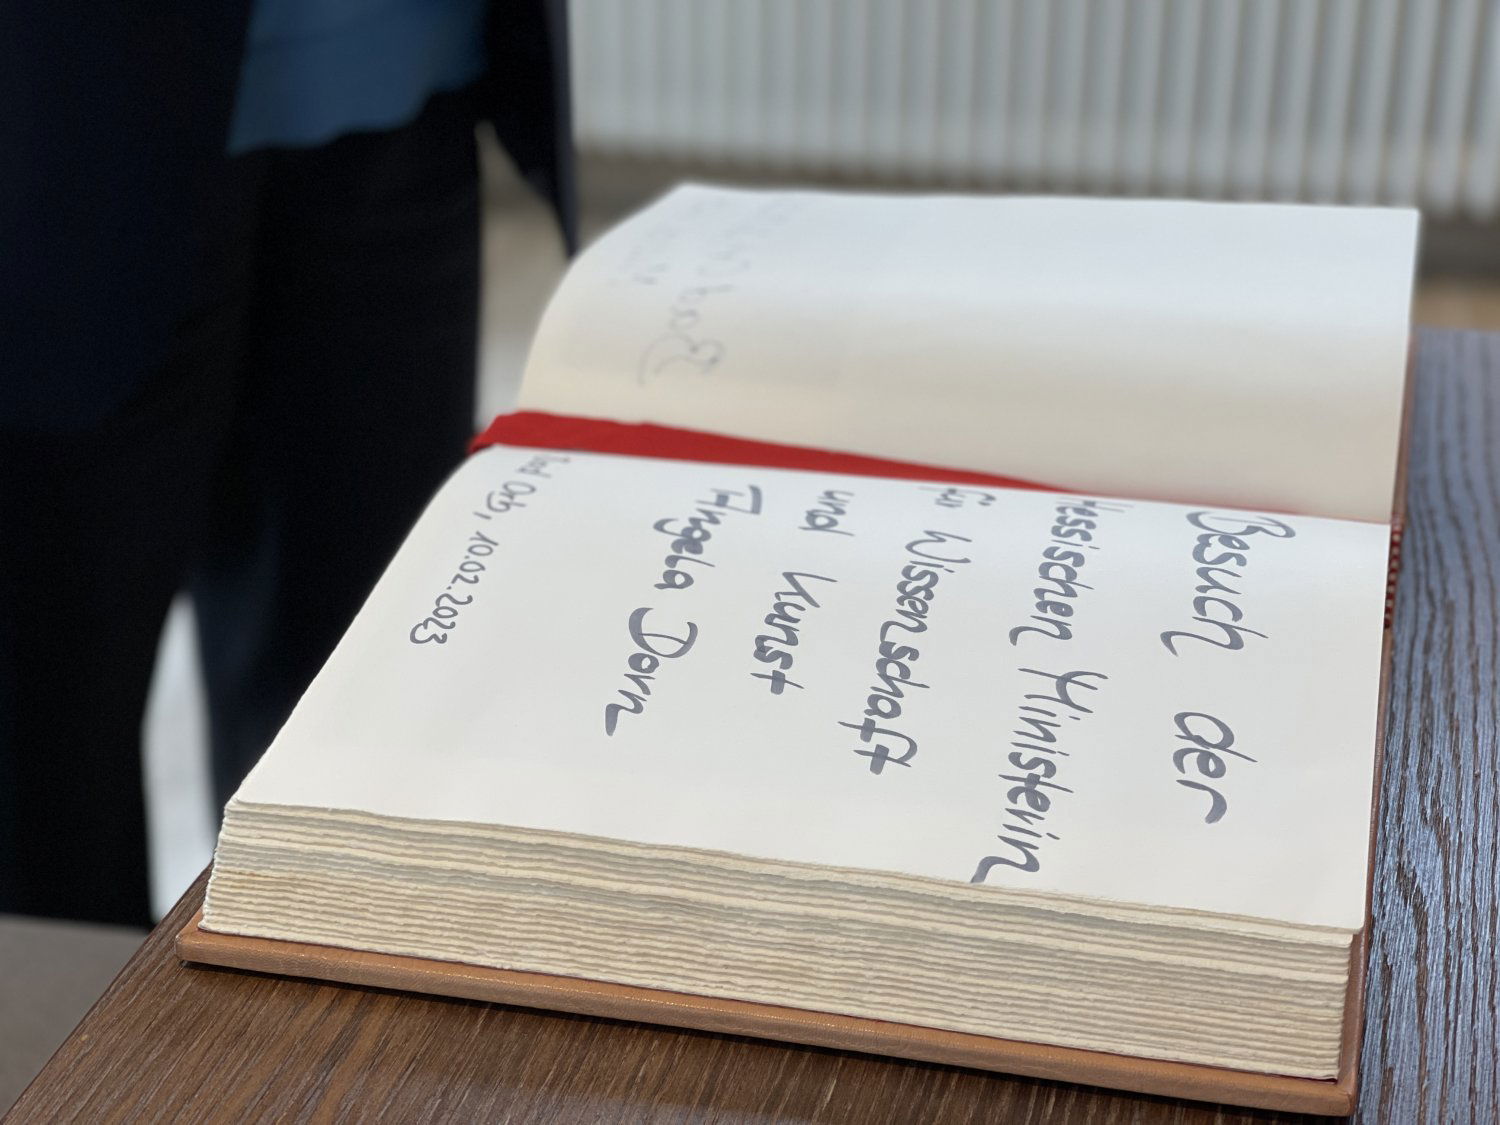 Besuch der
Hessischen Ministerin
für Wissenschaft
und Kunst
Angela Dorn
Bad Orb, 10.02.2023